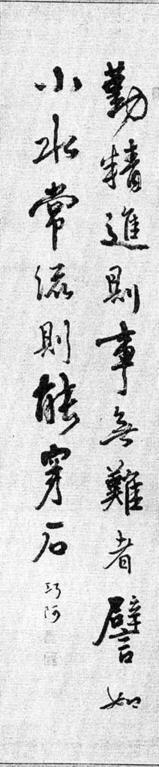 勤精進則事無難者譬如
小水常流則能穿石